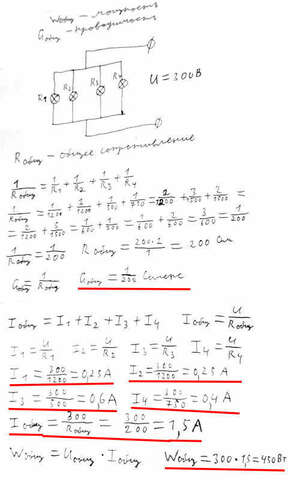 Wобщ - мощность
Gобщ - проводимость
R1 R2 R3 R4 U = 300В
Rобщ - общее сопротивление
1/Rобщ = 1/R1 + 1/R2 + 1/R3 + 1/R4
1/Rобщ = 1/1200 + 1/1200 + 1/500 + 1/750 =
1/Rобщ = 1/200 Rобщ = 200·1/1 = 200 Ом
Gобщ = 1/Rобщ Gобщ = 1/200 Сименс
Iобщ = I1 + I2 + I3 + I4 Iобщ = U/Rобщ
I1 = U/R1 = U/R2 I3 = U/R3 I4 = U/R4
I1 = 300/1200 = 0,25 А I2 = 300/1200 = 0,25 А
I3 = 300/500 = 0,6 А I4 = 300/750 = 0,4 А
Iобщ = 300/Rобщ = 300/200 = 1,5 А
Wобщ = Uобщ · Iобщ Wобщ = 300 · 1,5 = 450 Вт